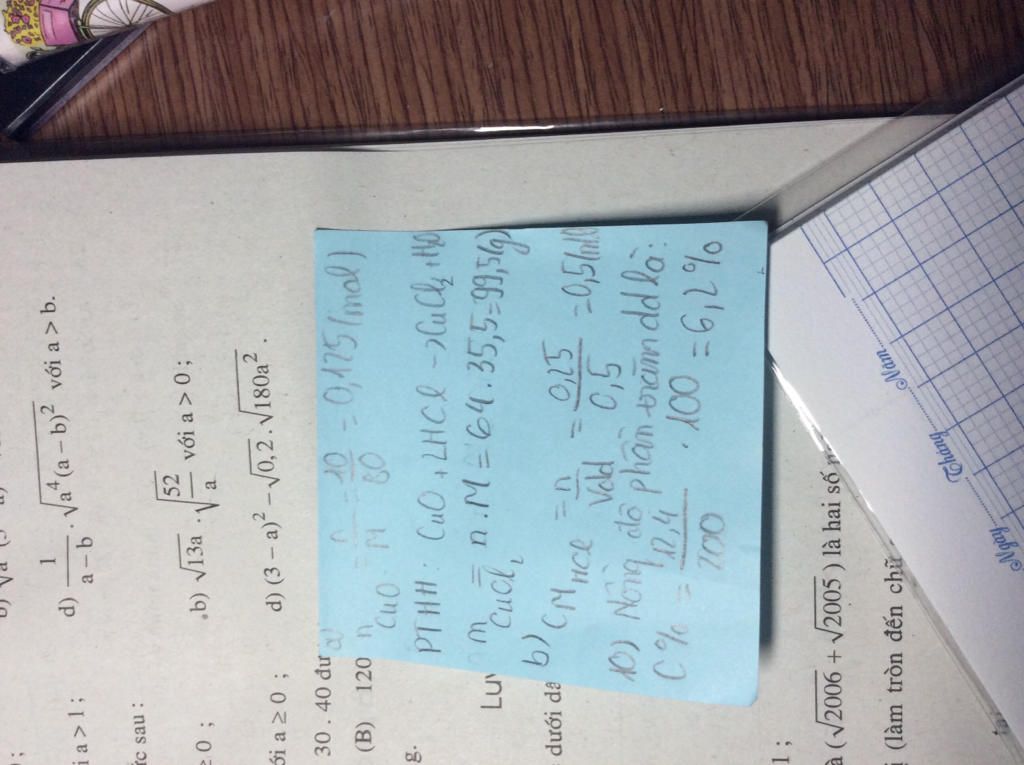 d) \frac{1}{a-b} . \sqrt{a^4(a-b)^2} với a > b.
i a > 1 ;
ức sau :
.b) \sqrt{13a} . \sqrt{\frac{52}{a}} với a > 0 ;
≥ 0 ;
d) (3 – a)^2 – \sqrt{0,2} . \sqrt{180a^2} .
ới a ≥ 0 ;
30 . 40 dư
(B) 120
g.
dưới dấ
a)
n CuO = \frac{n}{M} = \frac{10}{80} = 0,125 (mol)
PTHH : CuO + 2HCl → CuCl_2 + H_2O
m CuCl_2 = n . M = 64 . 35,5 = 99,5 (g)
b) C M HCl = \frac{n}{Vdd} = \frac{0,25}{0,5} = 0,5
10) Nồng độ phần trăm dd là :
C% = \frac{12,4}{200} . 100 = 6,2 %
1 ;
à (\sqrt{2006} + \sqrt{2005}) là hai số
(làm tròn đến chữ
Ngày Tháng Năm